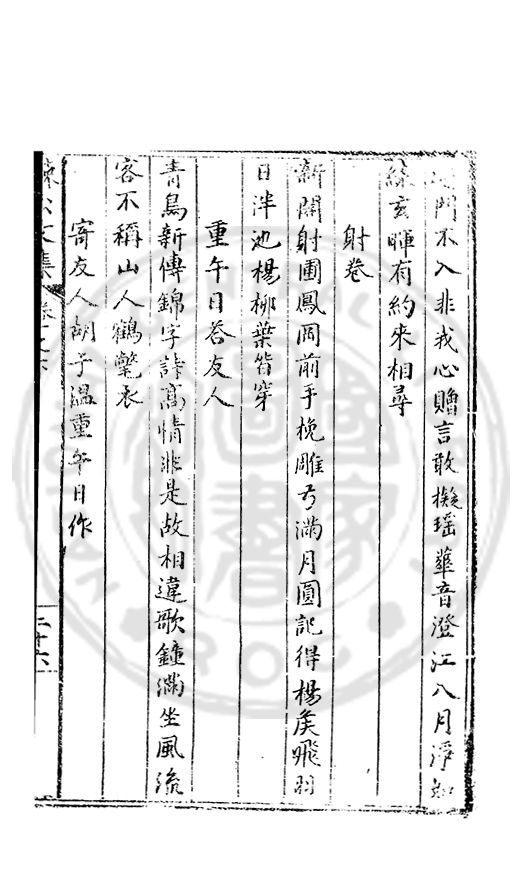 門不入非我心贈言敢擬瑤華音澄江八月淨如
練玄暉有約來相尋
射卷
新開射圃鳳岡前手挽雕弓滿月圓記得楊矦飛羽
日泮池楊柳葉皆穿
重午日答友人
青鳥新傳錦字詩高情非是故相違歌鐘滿坐風流
客不稱山人鶴氅衣
寄友人胡子溫重午日作
文集
二十六